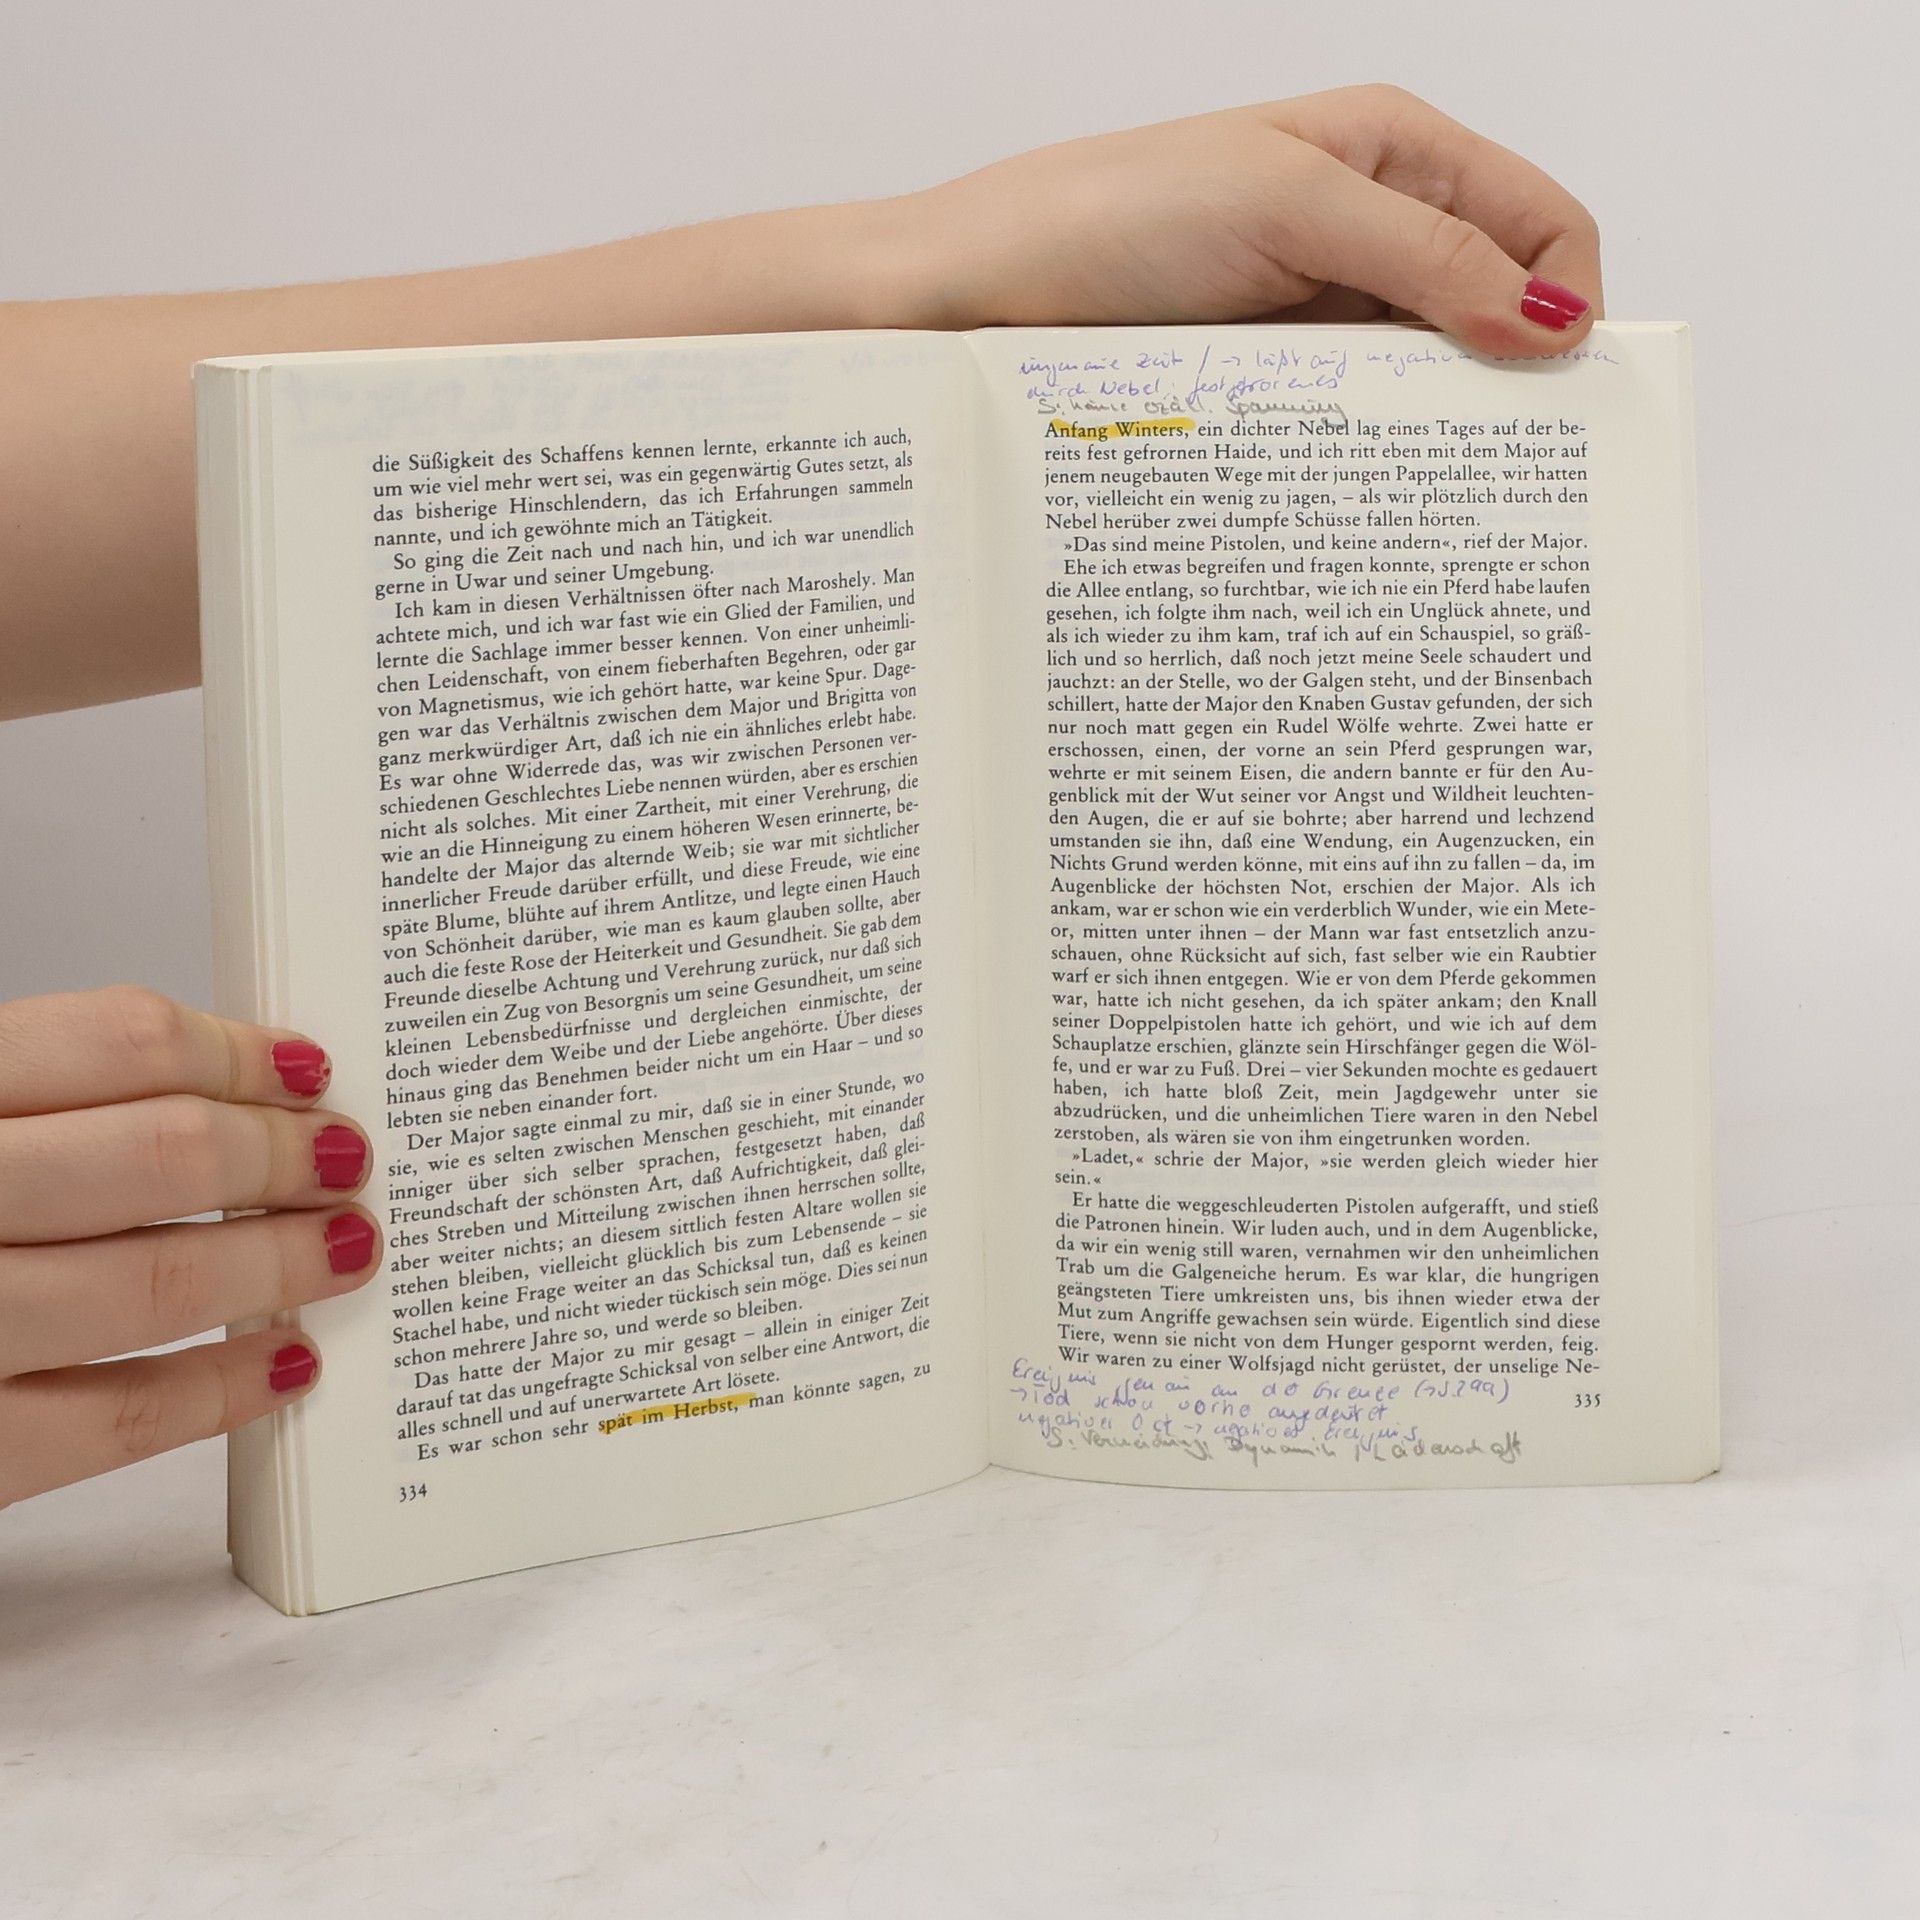 die Süßigkeit des Schaffens kennen lernte, erkannte ich auch,
um wie viel mehr wert sei, was ein gegenwärtig Gutes setzt, als
das bisherige Hinschlendern, das ich Erfahrungen sammeln
nannte, und ich gewöhnte mich an Tätigkeit.
So ging die Zeit nach und nach hin, und ich war unendlich
gerne in Uwar und seiner Umgebung.
Ich kam in diesen Verhältnissen öfter nach Maroshely. Man
achtete mich, und ich war fast wie ein Glied der Familien, und
lernte die Sachlage immer besser kennen. Von einer unheimli-
chen Leidenschaft, von einem fieberhaften Begehren, oder gar
von Magnetismus, wie ich gehört hatte, war keine Spur. Dage-
gen war das Verhältnis zwischen dem Major und Brigitta von
ganz merkwürdiger Art, daß ich nie ein ähnliches erlebt habe.
Es war ohne Widerrede das, was wir zwischen Personen ver-
schiedenen Geschlechtes Liebe nennen würden, aber es erschien
nicht als solches. Mit einer Zartheit, mit einer Verehrung, die
wie an die Hinneigung zu einem höheren Wesen erinnerte, be-
handelte der Major das alternde Weib; sie war mit sichtlicher
innerlicher Freude darüber erfüllt, und diese Freude, wie eine
späte Blume, blühte auf ihrem Antlitze, und legte einen Hauch
von Schönheit darüber, wie man es kaum glauben sollte, aber
auch die feste Rose der Heiterkeit und Gesundheit. Sie gab dem
Freunde dieselbe Achtung und Verehrung zurück, nur daß sich
zuweilen ein Zug von Besorgnis um seine Gesundheit, um seine
kleinen Lebensbedürfnisse und dergleichen einmischte, der
doch wieder dem Weibe und der Liebe angehörte. Über dieses
hinaus ging das Benehmen beider nicht um ein Haar – und so
lebten sie neben einander fort.
Der Major sagte einmal zu mir, daß sie in einer Stunde, wo
sie, wie es selten zwischen Menschen geschieht, mit einander
inniger über sich selber sprachen, festgesetzt haben, daß
Freundschaft der schönsten Art, daß Aufrichtigkeit, daß glei-
ches Streben und Mitteilung zwischen ihnen herrschen sollte,
aber weiter nichts; an diesem sittlich festen Altare wollen sie
stehen bleiben, vielleicht glücklich bis zum Lebensende – sie
wollen keine Frage weiter an das Schicksal tun, daß es keinen
Stachel habe, und nicht wieder tückisch sein möge. Dies sei nun
schon mehrere Jahre so, und werde so bleiben.
Das hatte der Major zu mir gesagt – allein in einiger Zeit
darauf tat das ungefragte Schicksal von selber eine Antwort, die
alles schnell und auf unerwartete Art lösete.
Es war schon sehr spät im Herbst, man könnte sagen, zu
334
Zeit / → läßt auf
durch Nebel; festgefrorenes
S: erzähl. Spannung
Anfang Winters, ein dichter Nebel lag eines Tages auf der be-
reits fest gefrornen Haide, und ich ritt eben mit dem Major auf
jenem neugebauten Wege mit der jungen Pappelallee, wir hatten
vor, vielleicht ein wenig zu jagen, – als wir plötzlich durch den
Nebel herüber zwei dumpfe Schüsse fallen hörten.
»Das sind meine Pistolen, und keine andern«, rief der Major.
Ehe ich etwas begreifen und fragen konnte, sprengte er schon
die Allee entlang, so furchtbar, wie ich nie ein Pferd habe laufen
gesehen, ich folgte ihm nach, weil ich ein Unglück ahnete, und
als ich wieder zu ihm kam, traf ich auf ein Schauspiel, so gräß-
lich und so herrlich, daß noch jetzt meine Seele schaudert und
jauchzt: an der Stelle, wo der Galgen steht, und der Binsenbach
schillert, hatte der Major den Knaben Gustav gefunden, der sich
nur noch matt gegen ein Rudel Wölfe wehrte. Zwei hatte er
erschossen, einen, der vorne an sein Pferd gesprungen war,
wehrte er mit seinem Eisen, die andern bannte er für den Au-
genblick mit der Wut seiner vor Angst und Wildheit leuchten-
den Augen, die er auf sie bohrte; aber harrend und lechzend
umstanden sie ihn, daß eine Wendung, ein Augenzucken, ein
Nichts Grund werden könne, mit eins auf ihn zu fallen – da, im
Augenblicke der höchsten Not, erschien der Major. Als ich
ankam, war er schon wie ein verderblich Wunder, wie ein Mete-
or, mitten unter ihnen – der Mann war fast entsetzlich anzu-
schauen, ohne Rücksicht auf sich, fast selber wie ein Raubtier
warf er sich ihnen entgegen. Wie er von dem Pferde gekommen
war, hatte ich nicht gesehen, da ich später ankam; den Knall
seiner Doppelpistolen hatte ich gehört, und wie ich auf dem
Schauplatze erschien, glänzte sein Hirschfänger gegen die Wöl-
fe, und er war zu Fuß. Drei – vier Sekunden mochte es gedauert
haben, ich hatte bloß Zeit, mein Jagdgewehr unter sie
abzudrücken, und die unheimlichen Tiere waren in den Nebel
zerstoben, als wären sie von ihm eingetrunken worden.
»Ladet,« schrie der Major, »sie werden gleich wieder hier
sein.«
Er hatte die weggeschleuderten Pistolen aufgerafft, und stieß
die Patronen hinein. Wir luden auch, und in dem Augenblicke,
da wir ein wenig still waren, vernahmen wir den unheimlichen
Trab um die Galgeneiche herum. Es war klar, die hungrigen
geängsteten Tiere umkreisten uns, bis ihnen wieder etwa der
Mut zum Angriffe gewachsen sein würde. Eigentlich sind diese
Tiere, wenn sie nicht von dem Hunger gespornt werden, feig.
Wir waren zu einer Wolfsjagd nicht gerüstet, der unselige Ne-
Ereignis genau an der Grenze (→ S. 299)
→ Tod schon vorne angedeutet
negativer Ort → negatives Ereignis
S: Dynamik, Leidenschaft
335